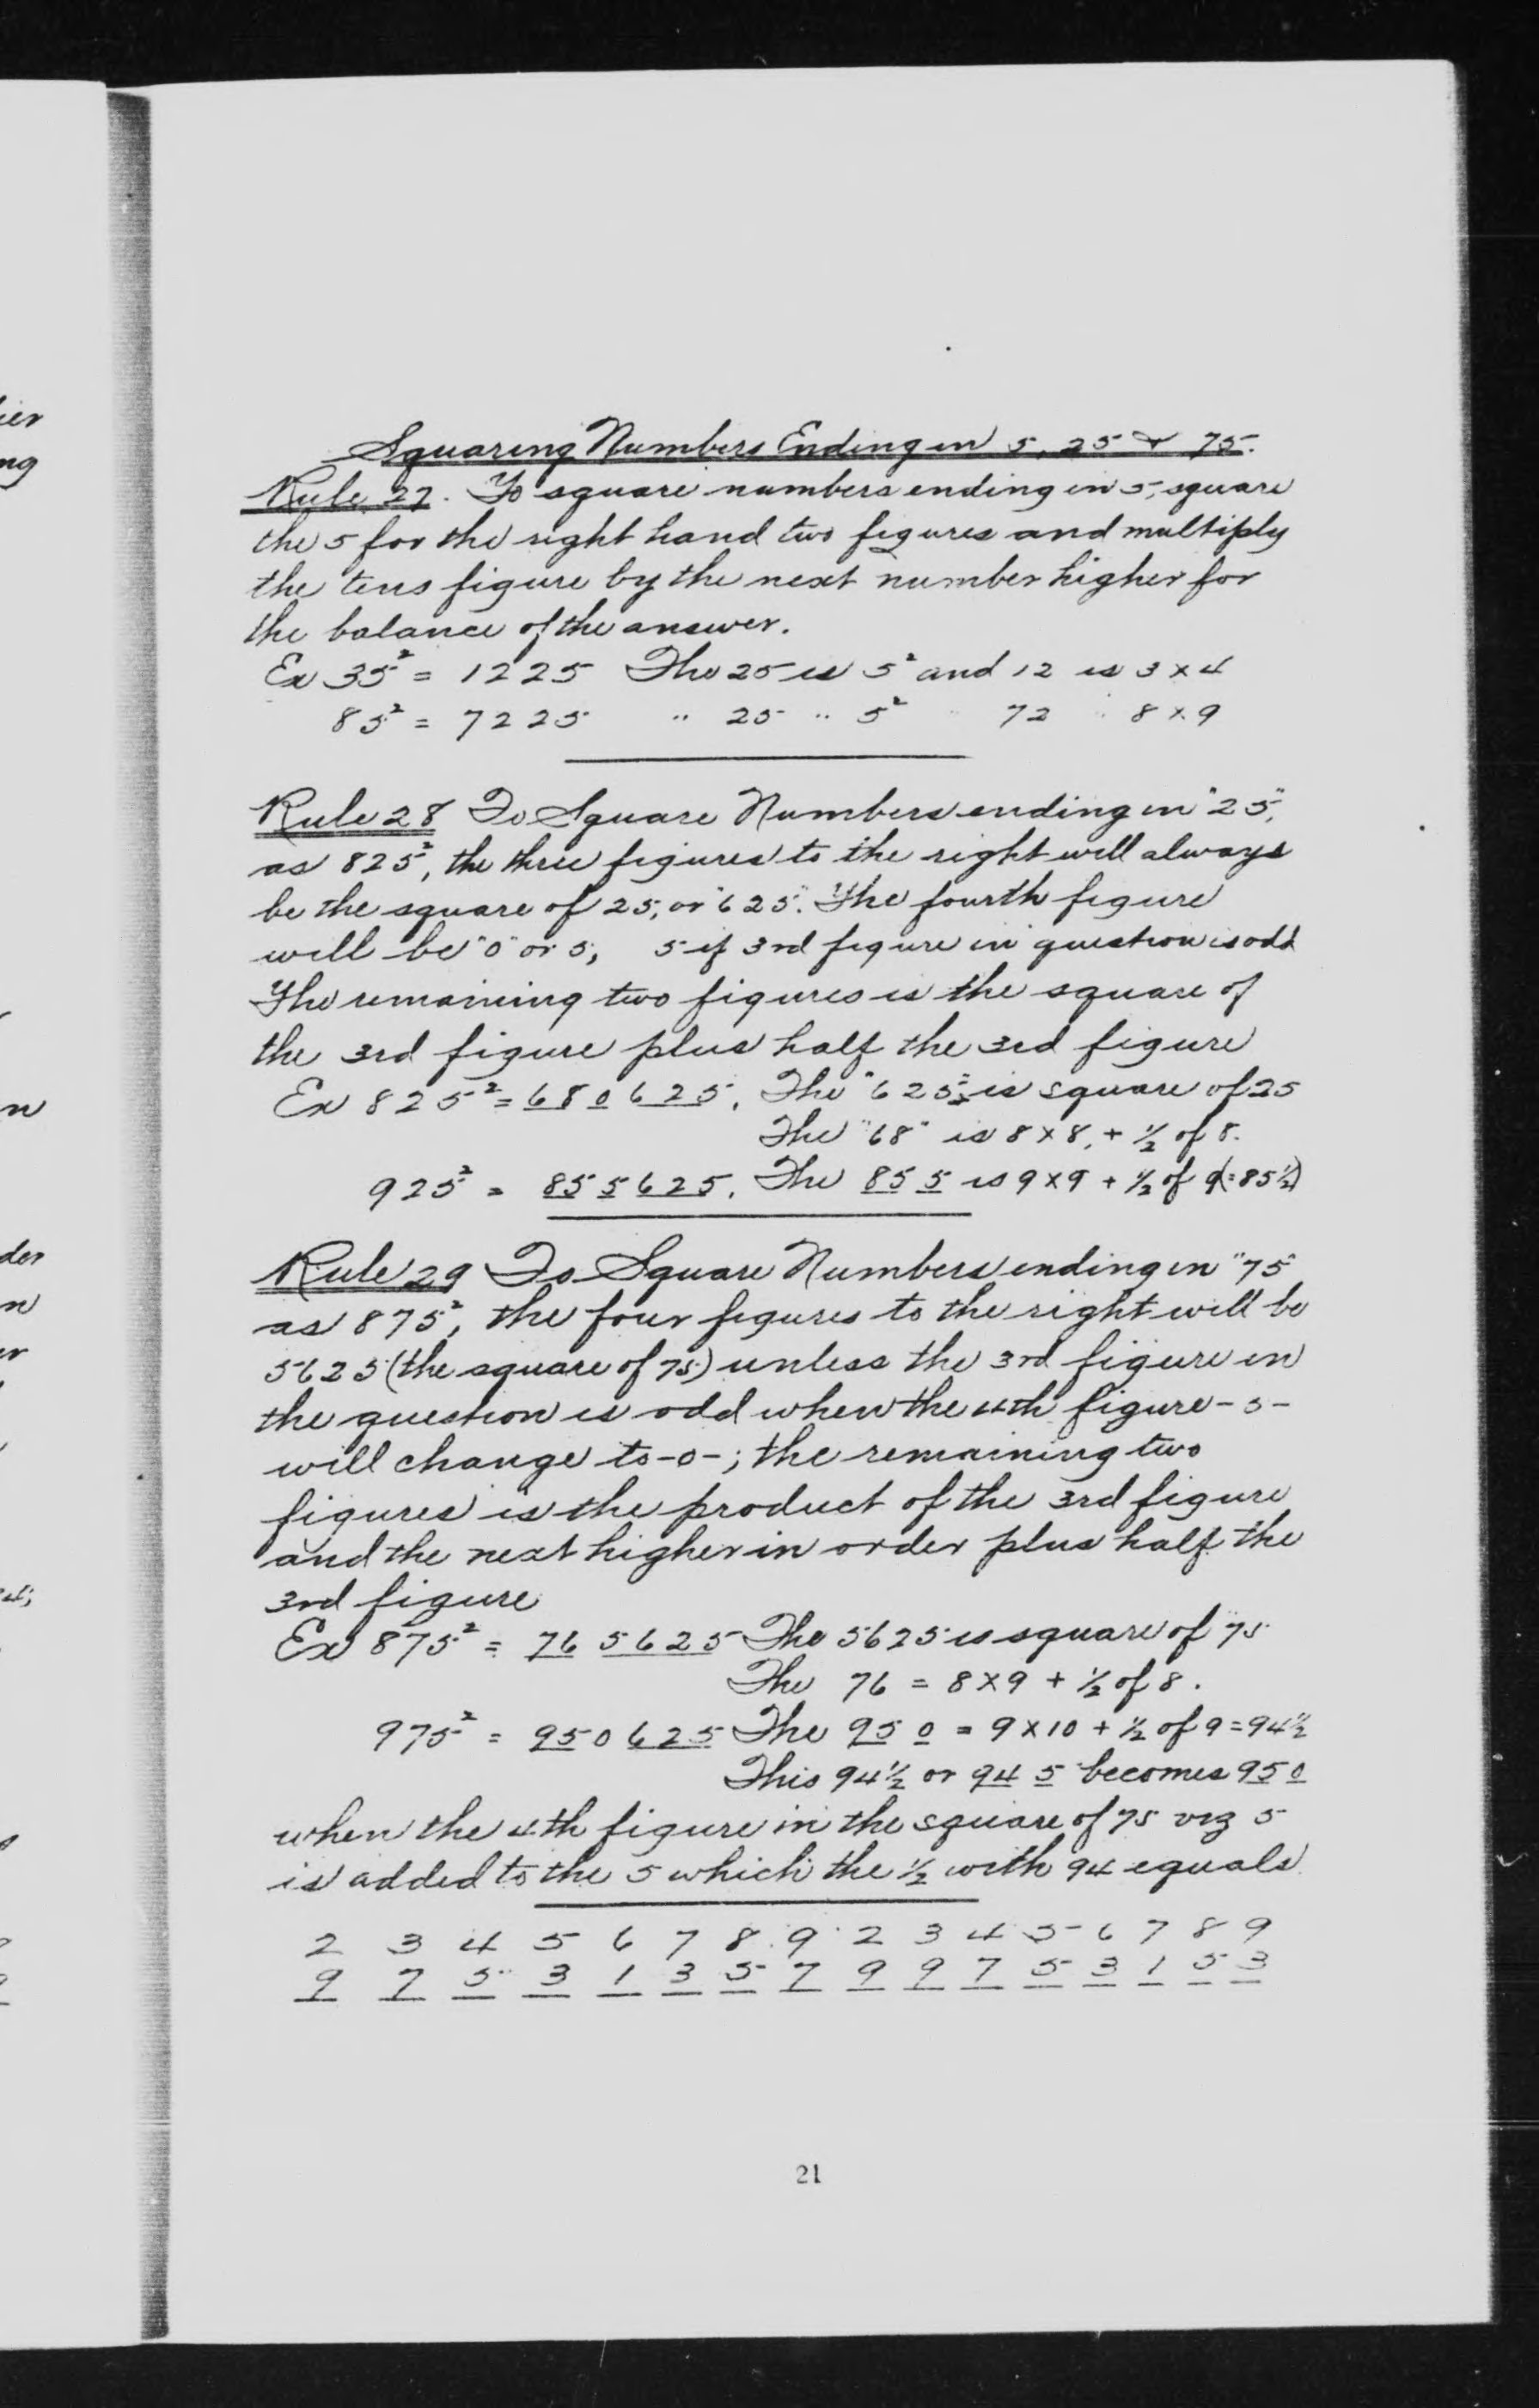 ier
ng
n
der
n
er
Squaring Numbers Ending in 5, 25 & 75.
Rule 27. To square numbers ending in 5, square
the 5 for the right hand two figures and multiply
the tens figure by the next number higher for
the balance of the answer.
Ex 35² = 1225 The 25 is 5² and 12 is 3 x 4
85² = 7225 " 25 " 5² " 72 " 8 x 9
Rule 28 To Square Numbers ending in "25",
as 825², the three figures to the right will always
be the square of 25, or "625". The fourth figure
will be "0" or 5, 5 if 3rd figure in question is odd
The remaining two figures is the square of
the 3rd figure plus half the 3rd figure
Ex 825² = 680625. The "625" is square of 25
The "68" is 8 x 8, + ½ of 8.
925² = 855625. The 85 5 is 9 x 9 + ½ of 9 (=85½)
Rule 29 To Square Numbers ending in "75"
as 875², the four figures to the right will be
5625 (the square of 75) unless the 3rd figure in
the question is odd when the 4th figure -5-
will change to -0-; the remaining two
figures is the product of the 3rd figure
and the next higher in order plus half the
3rd figure
Ex 875² = 76 5625 The 5625 is square of 75
The 76 = 8 x 9 + ½ of 8.
975² = 950625 The 95 0 = 9 x 10 + ½ of 9 = 94½
This 94½ or 94 5 becomes 95 0
when the 4th figure in the square of 75 viz 5
is added to the 5 which the ½ with 94 equals.
2 3 4 5 6 7 8 9 2 3 4 5 6 7 8 9
9 7 5 3 1 3 5 7 9 9 7 5 3 1 5 3
21